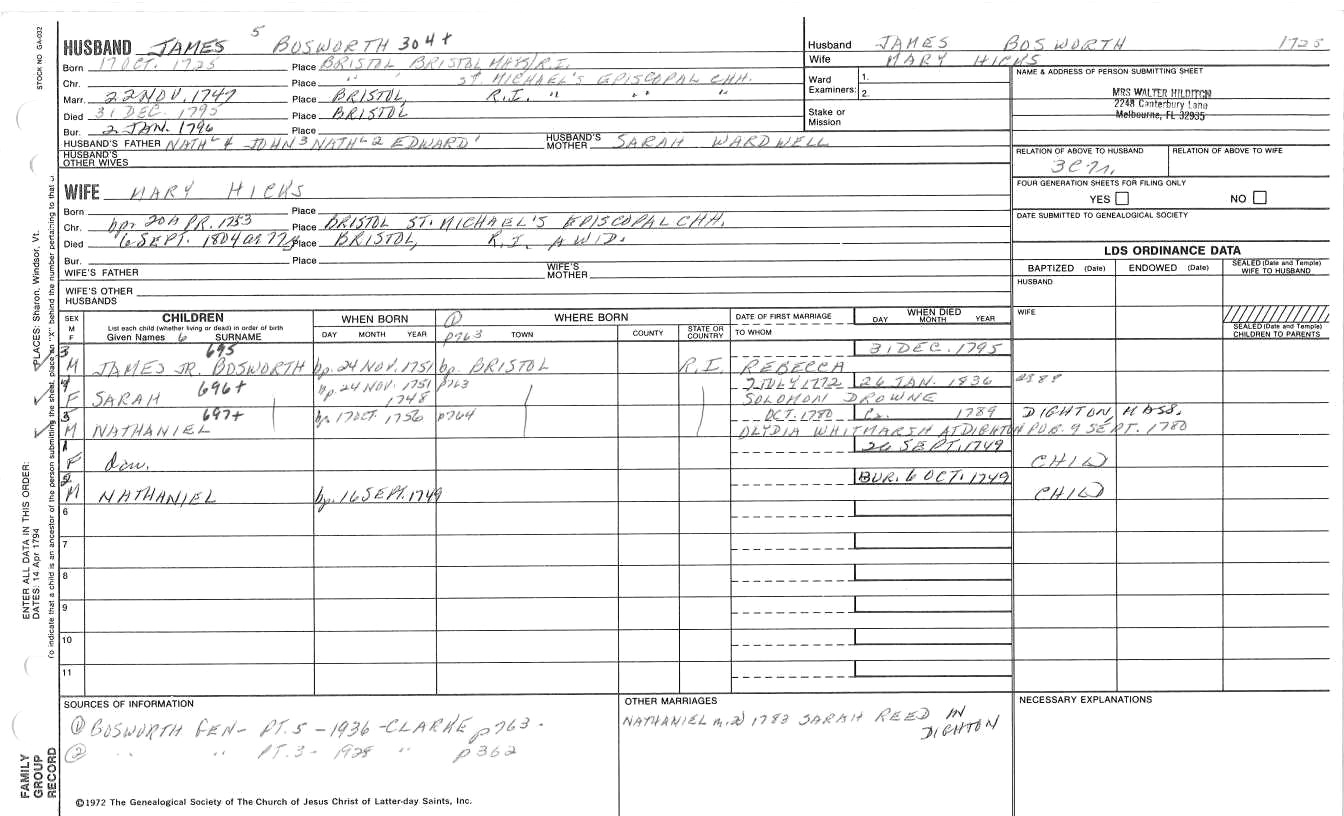 STOCK NO GA-032
5
HUSBAND JAMES BOSWORTH 304+
Born 17 OCT. 1725 Place BRISTOL BRISTOL MASS/R.I.
Chr. Place " " ST MICHAEL'S EPISCOPAL CHH.
Marr. 22 NOV. 1747 Place BRISTOL, R.I. " " "
Died 31 DEC. 1795 Place BRISTOL
Bur. 2 JAN. 1796 Place
HUSBAND'S FATHER NATHL 4 JOHN 3 NATHL 2 EDWARD 1 HUSBAND'S MOTHER SARAH WARDWELL
HUSBAND'S OTHER WIVES
Husband JAMES BOSWORTH 1725
Wife MARY HICKS
Ward Examiners: 1.
2.
Stake or Mission
NAME & ADDRESS OF PERSON SUBMITTING SHEET
MRS WALTER HILDITCH
2248 Canterbury Lane
Melbourne, FL 32935
RELATION OF ABOVE TO HUSBAND RELATION OF ABOVE TO WIFE
3C7r.
FOUR GENERATION SHEETS FOR FILING ONLY
YES NO
DATE SUBMITTED TO GENEALOGICAL SOCIETY
WIFE MARY HICKS
Born Place
Chr. bp. 20 APR. 1753 Place BRISTOL ST. MICHAEL'S EPISCOPAL CHH.
Died 6 SEPT. 1804 Place BRISTOL, R.I. A WID.
Bur. Place
WIFE'S FATHER WIFE'S MOTHER
WIFE'S OTHER HUSBANDS
LDS ORDINANCE DATA
BAPTIZED (Date) ENDOWED (Date) SEALED (Date and Temple) WIFE TO HUSBAND
HUSBAND
WIFE
SEALED (Date and Temple) CHILDREN TO PARENTS
SEX M F
CHILDREN
List each child (whether living or dead) in order of birth
Given Names 6 SURNAME
WHEN BORN
DAY MONTH YEAR
① WHERE BORN
p763 TOWN COUNTY STATE OR COUNTRY
DATE OF FIRST MARRIAGE
TO WHOM
WHEN DIED
DAY MONTH YEAR
3 695 31 DEC. 1795
M JAMES JR. BOSWORTH bp. 24 NOV. 1751 bp. BRISTOL R.I. REBECCA
4 696+ bp. 24 NOV. 1751 p763 7 JULY 1772 26 JAN. 1836
F SARAH 1748 SOLOMON DROWNE
5 697+ bp. 17 OCT. 1756 p764 OCT. 1780 1789 DIGHTON, MASS.
M NATHANIEL LYDIA WHITMARSH AT DIGHTON PUB. 9 SEPT. 1780
1 26 SEPT. 1749
F Dau. CHILD
2 BUR. 6 OCT. 1749
M NATHANIEL bp. 16 SEPT. 1749 CHILD
6
7
8
9
10
11
SOURCES OF INFORMATION
① BOSWORTH GEN- PT. 5 - 1936 - CLARKE p763 -
② " " PT. 3 - 1928 " p362
OTHER MARRIAGES
NATHANIEL m. 2) 1783 SARAH REED IN
DIGHTON
NECESSARY EXPLANATIONS
©1972 The Genealogical Society of The Church of Jesus Christ of Latter-day Saints, Inc.
FAMILY GROUP RECORD
ENTER ALL DATA IN THIS ORDER:
DATES: 14 Apr 1794
PLACES: Sharon, Windsor, Vt.
To indicate that a child is an ancestor of the person submitting the sheet, place an "X" behind the number pertaining to that